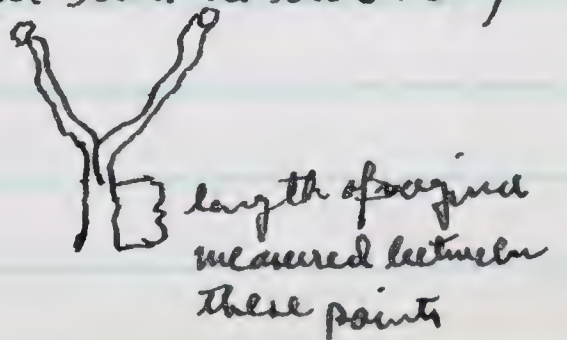 length of vagina
measured between
these points